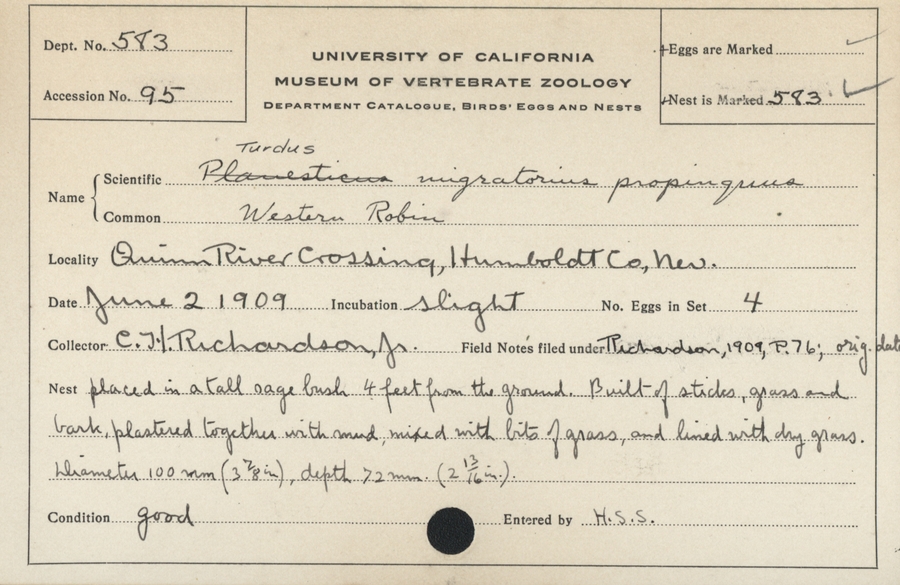 Dept. No. 583
Accession No. 95
UNIVERSITY OF CALIFORNIA
MUSEUM OF VERTEBRATE ZOOLOGY
DEPARTMENT CATALOGUE, BIRDS' EGGS AND NESTS
Eggs are Marked
Nest is Marked 583
Turdus
Name { Scientific Planesticus migratorius propinquus
Common Western Robin
Locality Quinn River Crossing, Humboldt Co, Nev.
Date June 2 1909 Incubation slight No. Eggs in Set 4
Collector C.H. Richardson, Jr. Field Notes filed under Richardson, 1909, P. 76; orig. data
Nest placed in a tall sage bush 4 feet from the ground. Built of sticks, grass and
bark, plastered together with mud, mixed with bits of grass, and lined with dry grass.
Diameter 100 mm (3 7/8 in), depth 72 mm. (2 13/16 in.).
Condition good Entered by H.S.S.